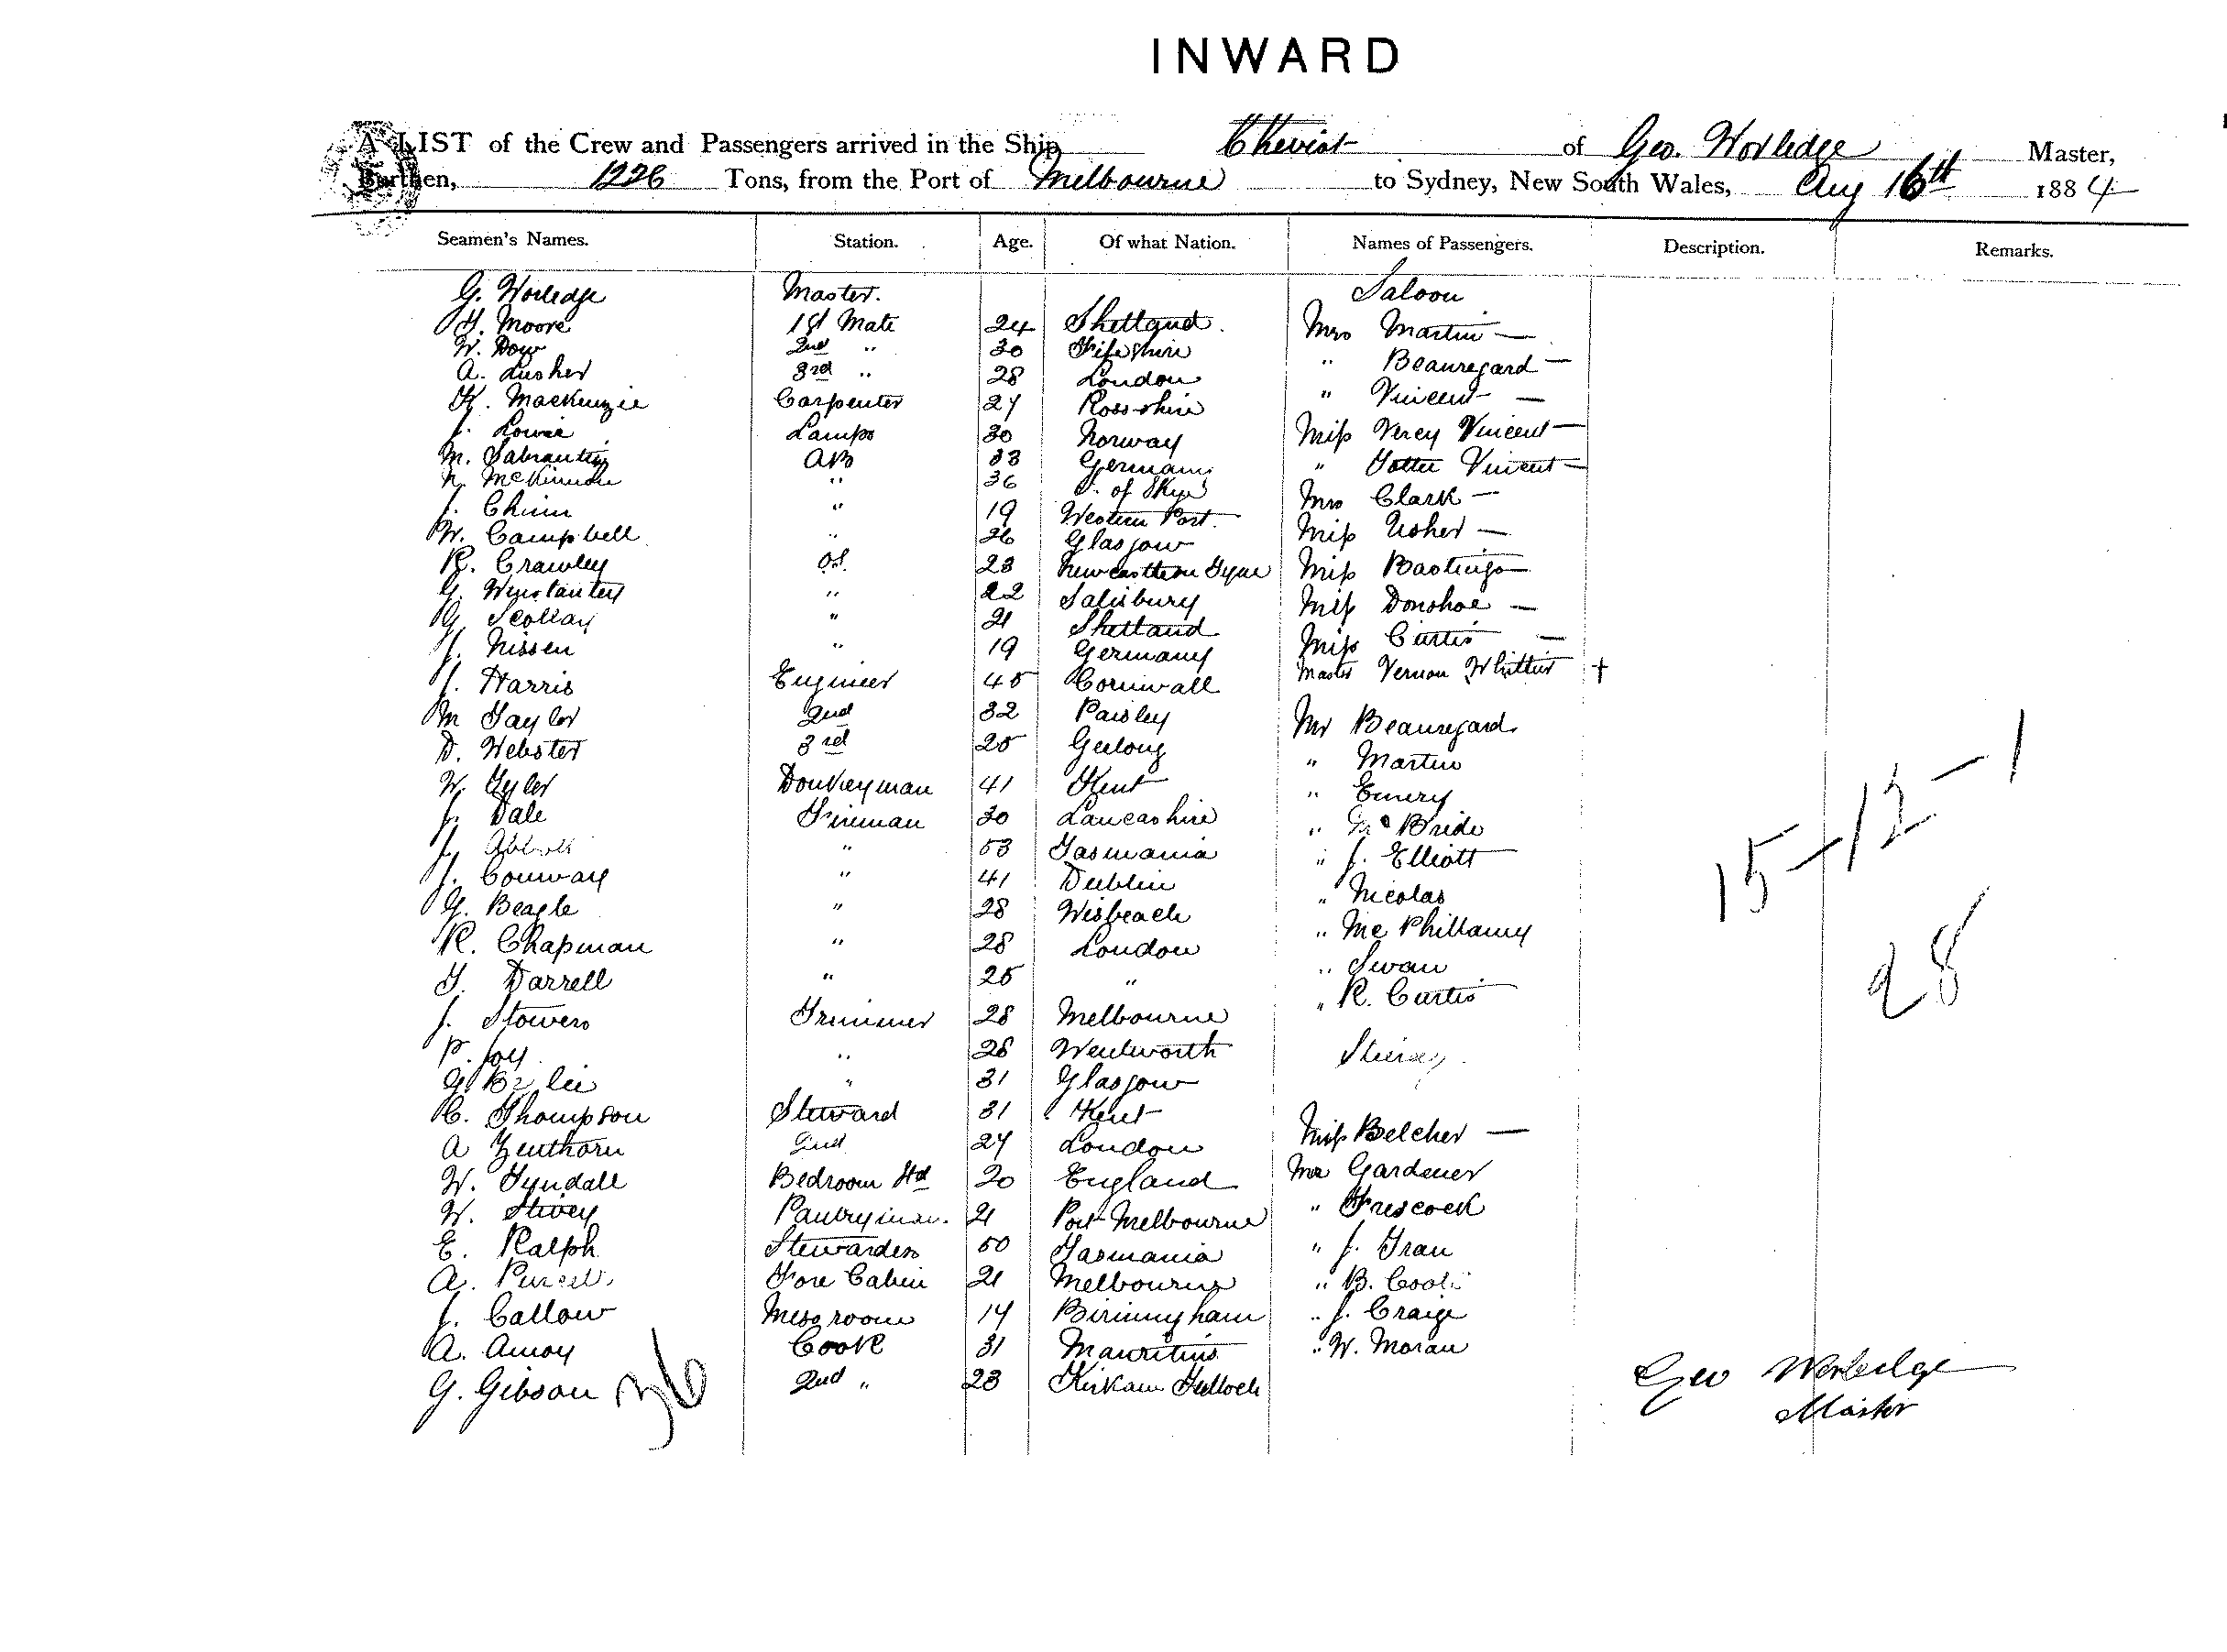 INWARD
A LIST of the Crew and Passengers arrived in the Ship Cheviot of Geo. Worledge Master,
Burthen, 1226 Tons, from the Port of Melbourne to Sydney, New South Wales, Aug 16th 1884
Seamen's Names. Station. Age. Of what Nation. Names of Passengers. Description. Remarks.
G. Worledge Master. Saloon
T. Moore 1st Mate 24 Shetland. Mrs Martin —
W. Dow 2nd " 30 Fifeshire " Beauregard —
A. Lusher 3rd " 28 London " Vincent —
K. MacKenzie Carpenter 27 Ross-shire Miss Percy Vincent —
J. Lowie Lamps 30 Norway " Vincent —
M. AB 33 Germany Mrs Clark —
N. McKinnon " 36 I. of Skye Miss Usher —
J. Chinn " 19 Western Port. Miss Bastings
W. Campbell " 26 Glasgow Miss Donohoe —
R. Crawley OS. 23 Newcastle on Tyne Miss Curtis —
G. Winstanley " 22 Salisbury Master Vernon Whittier +
G. Scollay " 21 Shetland
J. Nissen " 19 Germany
J. Harris Engineer 45 Cornwall
M Taylor 2nd 32 Paisley Mr Beauregard
D. Webster 3rd 25 Geelong " Martin
W. Tyler Donkeyman 41 Kent " Emery
J. Dale Fireman 30 Lancashire " McBride
J. Abbott " 53 Tasmania " J. Elliott
J. Conway " 41 Dublin " Nicolas
G. Beagle " 28 Wisbeach " Mc Phillamy
R. Chapman " 28 London " Swan
T. Darrell " 25 " " R. Curtis
J. Stowers Trimmer 28 Melbourne
P. Joy " 28 Wentworth Steerage
G. " 31 Glasgow
C. Thompson Steward 31 Kent
A Zenthorn 2nd 27 London Miss Belcher —
W. Tyndall Bedroom Std 20 England Mr Gardener
W. Stivey Pantryman. 21 Port Melbourne " Frescock
E. Ralph Stewardess 50 Tasmania " J. Tran
A. Purcell Fore Cabin 21 Melbourne " B. Cook
J. Callow Messroom 17 Birmingham " J. Craige
A. Amoy Cook 31 Mauritius " W. Moran
G. Gibson 2nd " 23
36
15 + 12 - 1
28
Geo Worledge
Master